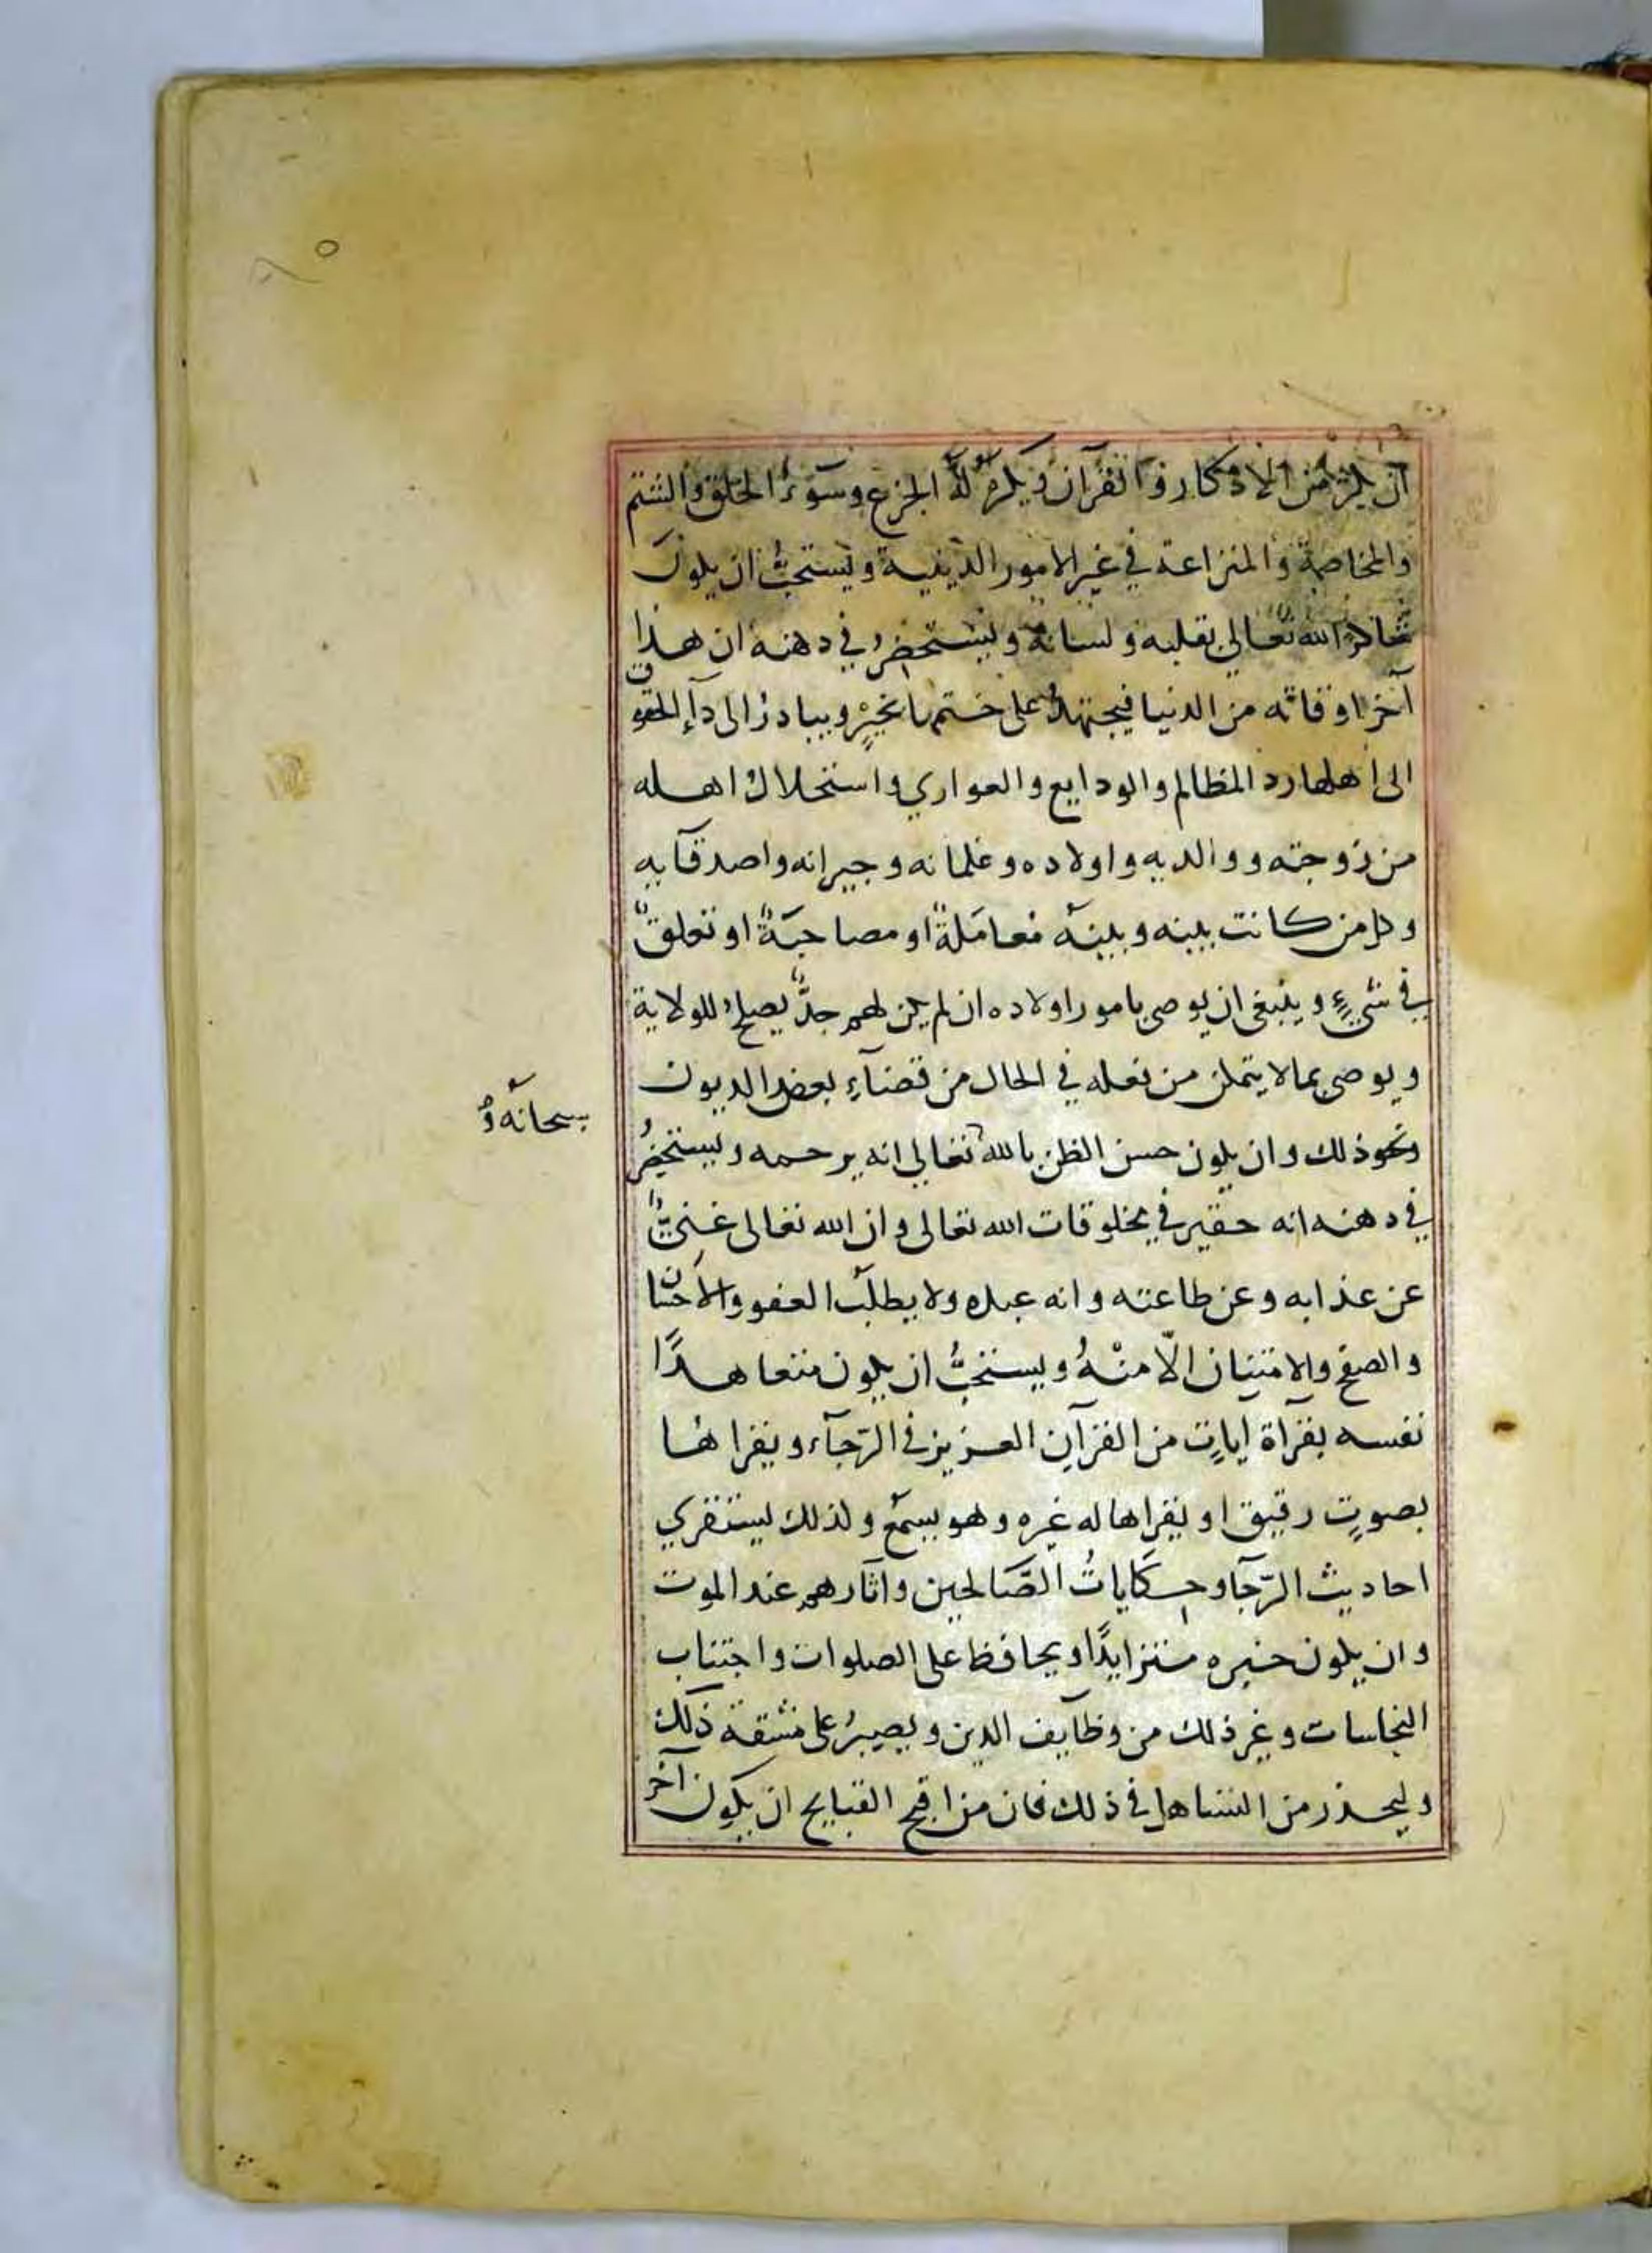 ان يكثر من الاذكار والقرآن ويكره له الجزع وسوء الخلق والشتم
والمخاصمة والمنازعة في غير الامور الدينية ويستحب ان يكون
شاكرا لله تعالى بقلبه ولسانه ويستحضر في ذهنه ان هذا
آخر اوقاته من الدنيا فيجتهد على ختمها بخير ويبادر الى دآء الحقوق
الى اهلها رد المظالم والودايع والعواري واستحلال اهله
من زوجته ووالديه واولاده وغلمانه وجيرانه واصدقآيه
وكل من كانت بينه وبينه معاملةً او مصاحبةً او تعلق
في شيءٍ وينبغي ان يوصي بامور اولاده ان لم يكن لهم جدٌّ يصلح للولاية
ويوصي بما لا يتمكن من فعله في الحال من قضآءِ بعض الديون
ونحو ذلك وان يكون حسن الظن بالله تعالى انه يرحمه ويستحضرُ
سبحانه و
في ذهنه انه حقير في مخلوقات الله تعالى وان الله تعالى غنيٌّ
عن عذابه وعن طاعته وانه عبده ولا يطلب العفو والاحسان
والصفح والامتنان الّا منْهُ ويستحبُّ ان يكون متعاهدًا
نفسه بقرآة اياتٍ من القرآن العزيز في الرّجآء ويقراها
بصوتٍ رقيق او يقراها له غيره وهو يسمع ولذلك يستقري
احاديث الرّجآ وحكاياتُ الصَّالحين وآثارهم عند الموت
وان يكون خيره متزايدًا ويحافظ على الصلوات واجتناب
النجاسات وغير ذلك من وظايف الدين ويصبرُ على مشقة ذلك
وليحذر من التساهل في ذلك فان من اقبح القبايح ان يكون آخر